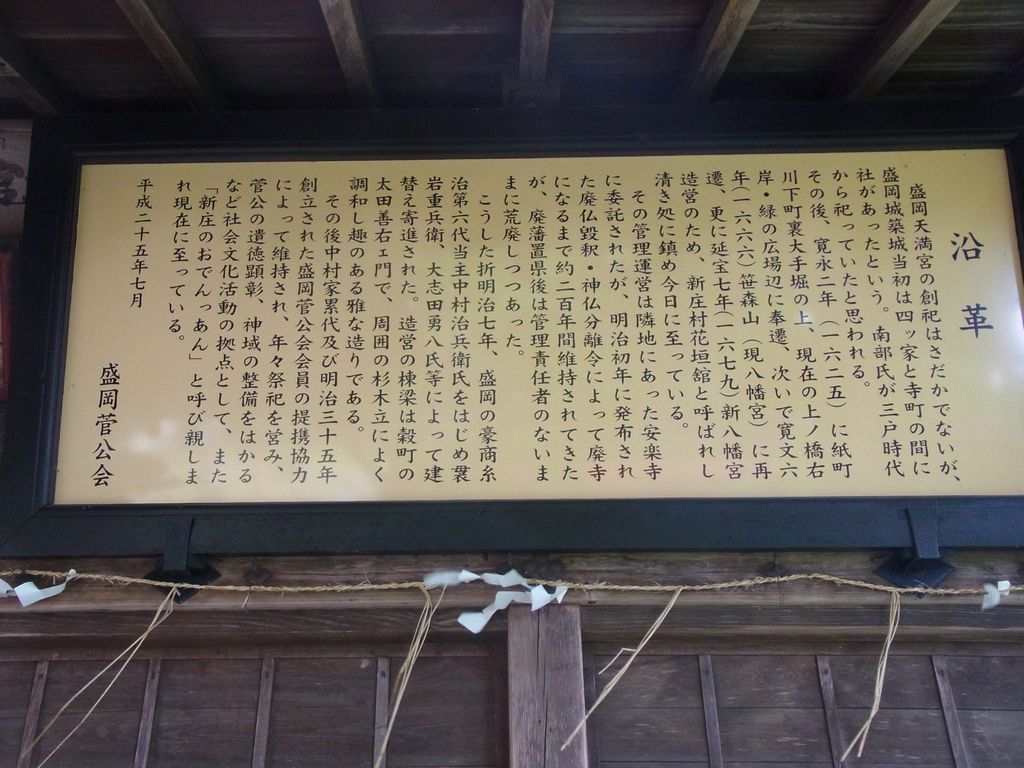 沿革
盛岡天満宮の創祀はさだかでないが、
盛岡城築城当初は四ッ家と寺町の間に
社があったという。南部氏が三戸時代
から祀っていたと思われる。
その後、寛永二年(一六二五)に紙町
川下町裏大手堀の上、現在の上ノ橋右
岸・緑の広場辺に奉遷、次いで寛文六
年(一六六六)笹森山(現八幡宮)に再
遷、更に延宝七年(一六七九)新八幡宮
造営のため、新庄村花垣舘と呼ばれし
清き処に鎮め今日に至っている。
その管理運営は隣地にあった安楽寺
に委託されたが、明治初年に発布され
た廃仏毀釈・神仏分離令によって廃寺
になるまで約二百年間維持されてきた
が、廃藩置県後は管理責任者のないま
まに荒廃しつつあった。
こうした折明治七年、盛岡の豪商糸
治第六代当主中村治兵衛氏をはじめ襲
岩重兵衛、大志田勇八氏等によって建
替え寄進された。造営の棟梁は穀町の
太田善右ェ門で、周囲の杉木立によく
調和し趣のある雅な造りである。
その後中村家累代及び明治三十五年
創立された盛岡菅公会会員の提携協力
によって維持され、年々祭祀を営み、
菅公の遺徳顕彰、神域の整備をはかる
など社会文化活動の拠点として、また
「新庄のおでんっあん」と呼び親しま
れ現在に至っている。
平成二十五年七月
盛岡菅公会